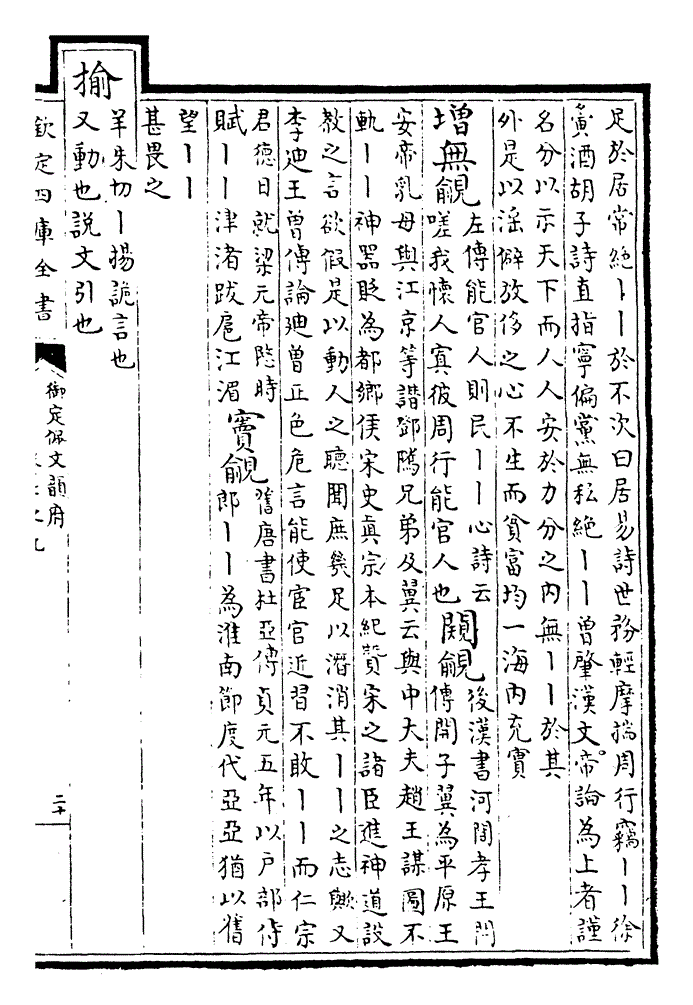 足於居常絶丨丨於不次曰居易詩世務輕摩揣周行竊丨丨徐
夤酒胡子詩直指寧偏黨無私絶丨丨曾肇漢文帝論為上者謹
名分以示天下而人人安於力分之内無丨丨於其
外是以滛僻放侈之心不生而貧富均一海内充實
增無覦
左傳能官人則民丨丨心詩云
嗟我懷人寘彼周行能官人也
闚覦
後漢書河間孝王開
傳開子翼為平原王
安帝乳母與江京等譖鄧騭兄弟及翼云與中大夫趙王謀圖不
軌丨丨神器貶為都鄉侯宋史真宗本紀贊宋之諸臣進神道設
教之言欲假是以動人之聽聞庶幾足以潛消其丨丨之志歟又
李迪王曾傳論迪曾正色危言能使宦官近習不敢丨丨而仁宗
君德日就梁元帝臨時
賦丨丨津渚跋扈江湄
竇覦
舊唐書杜亞傳貞元五年以户部侍
郎丨丨為淮南節度代亞亞猶以舊
望丨丨
甚畏之
揄
羊朱切丨揚詭言也
又動也說文引也
欽定四庫全書
御定佩文韻府
之九
二十